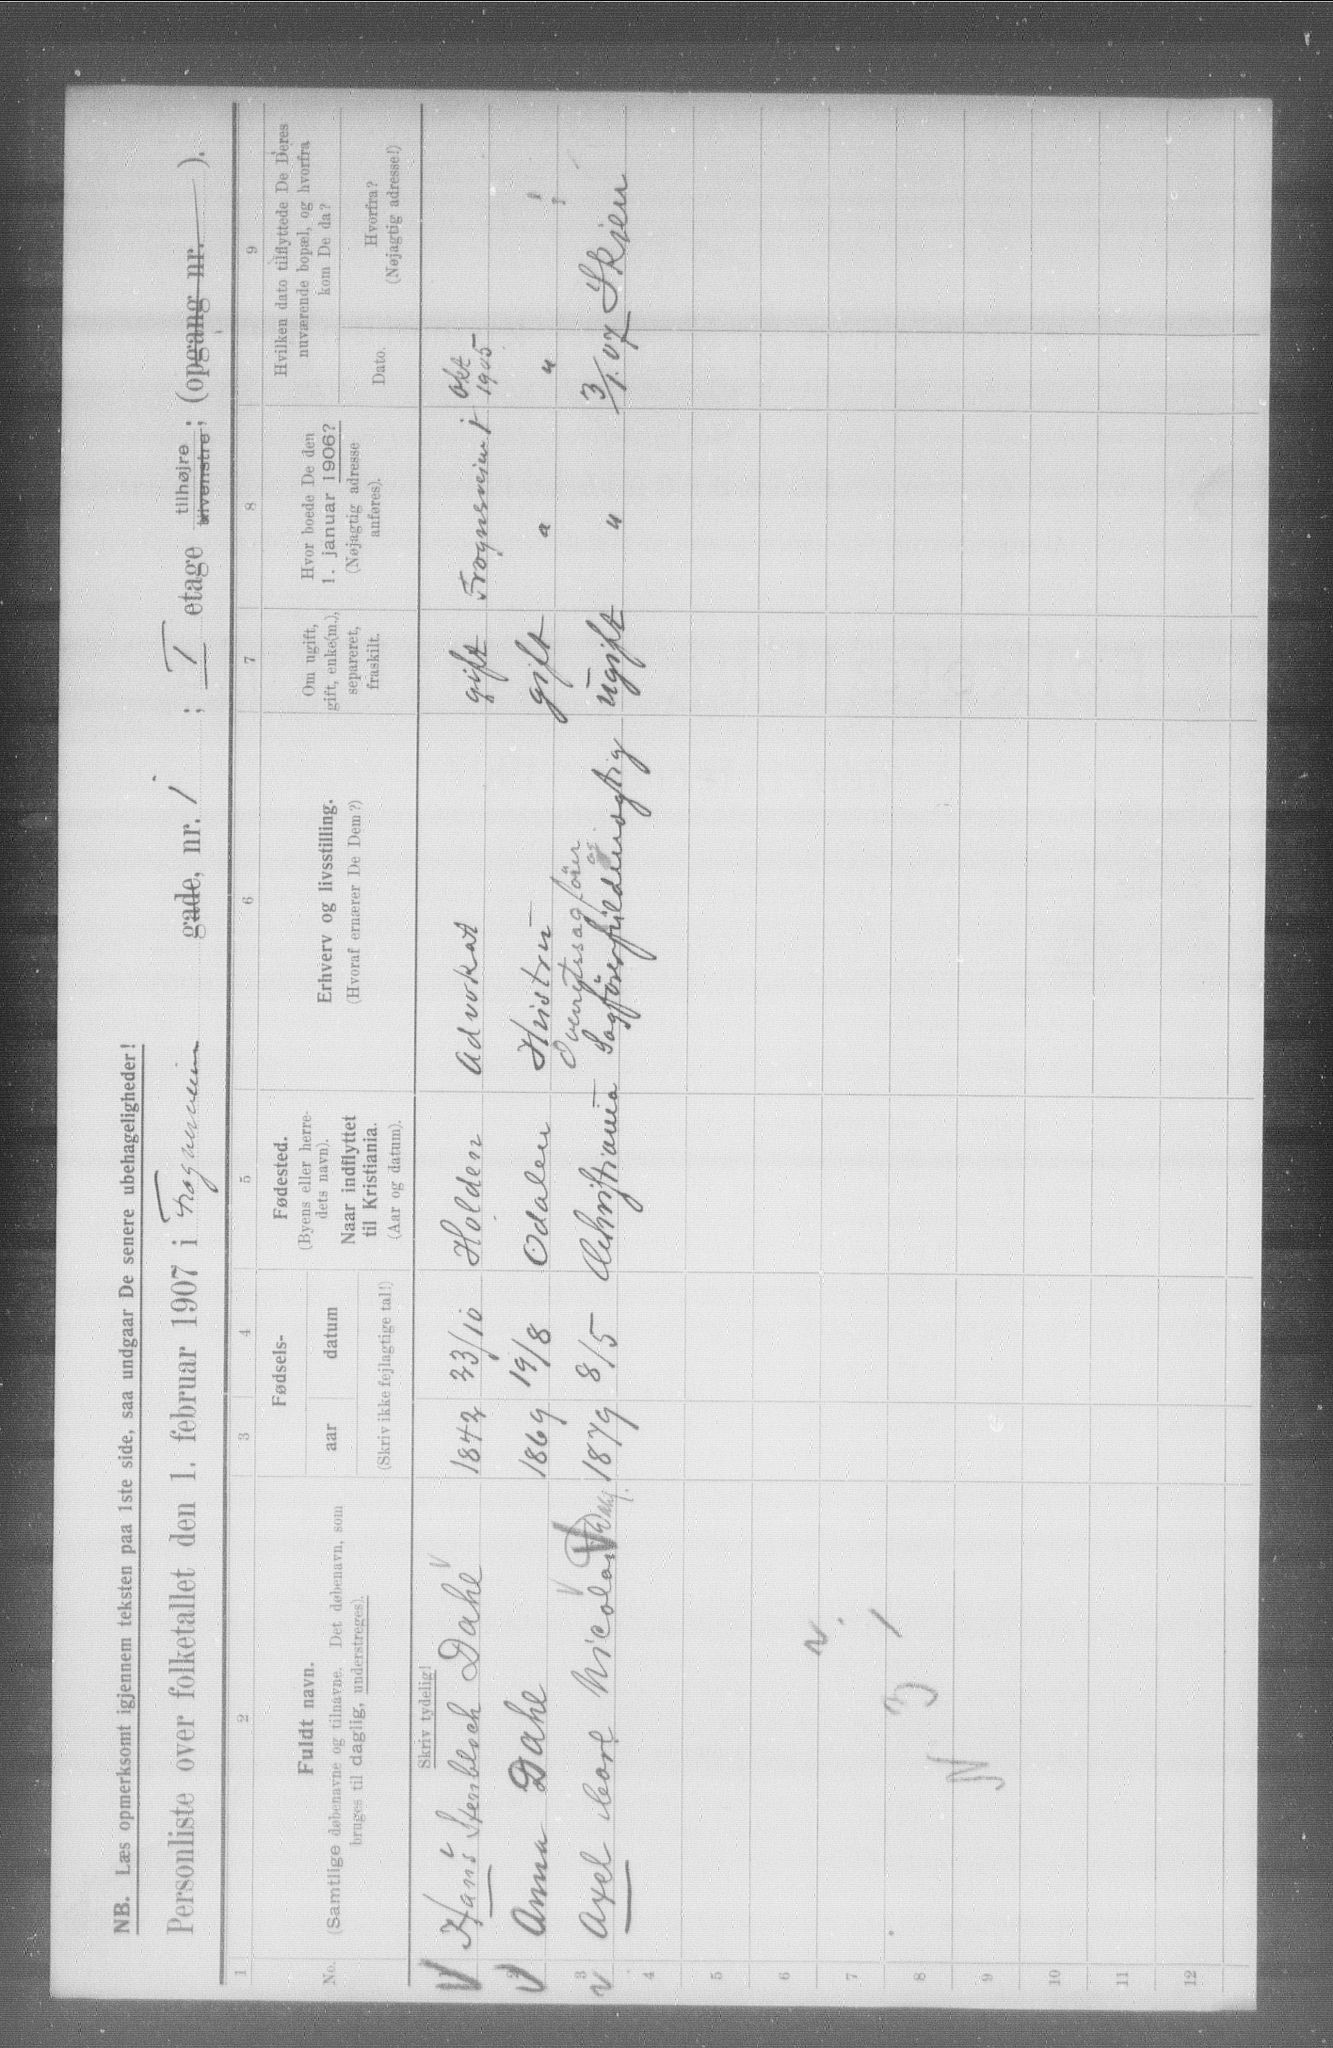 NB. Læs opmerksomt igjennem teksten paa 1ste side, saa undgaar De senere ubehageligheder!
Personliste over folketallet den 1. februar 1907 i Frognerveien gade, nr. 1 ; I etage tilhøjre ; tilvenstre; (opgang nr. — ).
1 2 3 4 5 6 7 8 9
No.
Fuldt navn.
(Samtlige døbenavne og tilnavne. Det døbenavn, som
bruges til daglig, understreges).
Fødsels-
aar datum
(Skriv ikke fejlagtige tal!)
Fødested.
(Byens eller herre-
dets navn).
Naar indflyttet
til Kristiania.
(Aar og datum).
Erhverv og livsstilling.
(Hvoraf ernærer De Dem?)
Om ugift,
gift, enke(m.),
separeret,
fraskilt.
Hvor boede De den
1. januar 1906?
(Nøjagtig adresse
anføres).
Hvilken dato tilflyttede De Deres
nuværende bopæl, og hvorfra
kom De da?
Dato.
Hvorfra?
(Nøjagtig adresse!)
Skriv tydelig!
1 Hans Stenbloch Dahl 1842 23/10 Holden Advokat gift Frognerveien 1 Okt 1905
2 Anna Dahl 1869 19/8 Odalen Hustru gift " "
3 Axel Carl Nicolai Dahl 1879 8/5 Christiania Overretssagfører og Sagførerfuldmægtig ugift " 3/1.07 Skien
4
5
6
7
8
9
10
11
12
N.
N 3 1